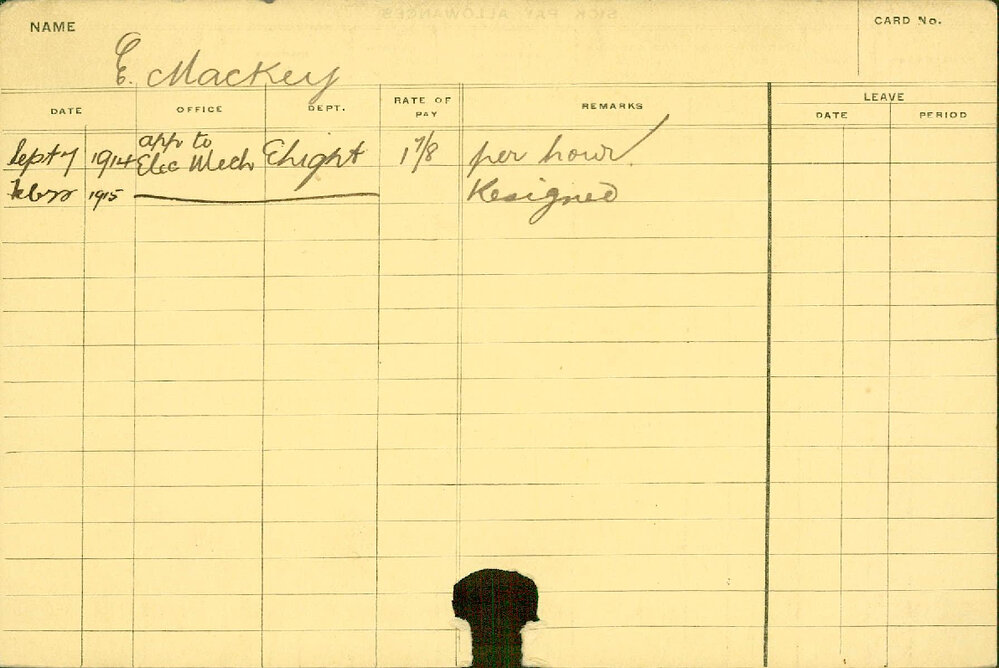 NAME E. Mackey
CARD No.
DATE OFFICE DEPT. RATE OF PAY REMARKS LEAVE
DATE PERIOD
Sept 7 1914 app to Elec Mech Elight 1 7/8 per hour
1915 Resigned